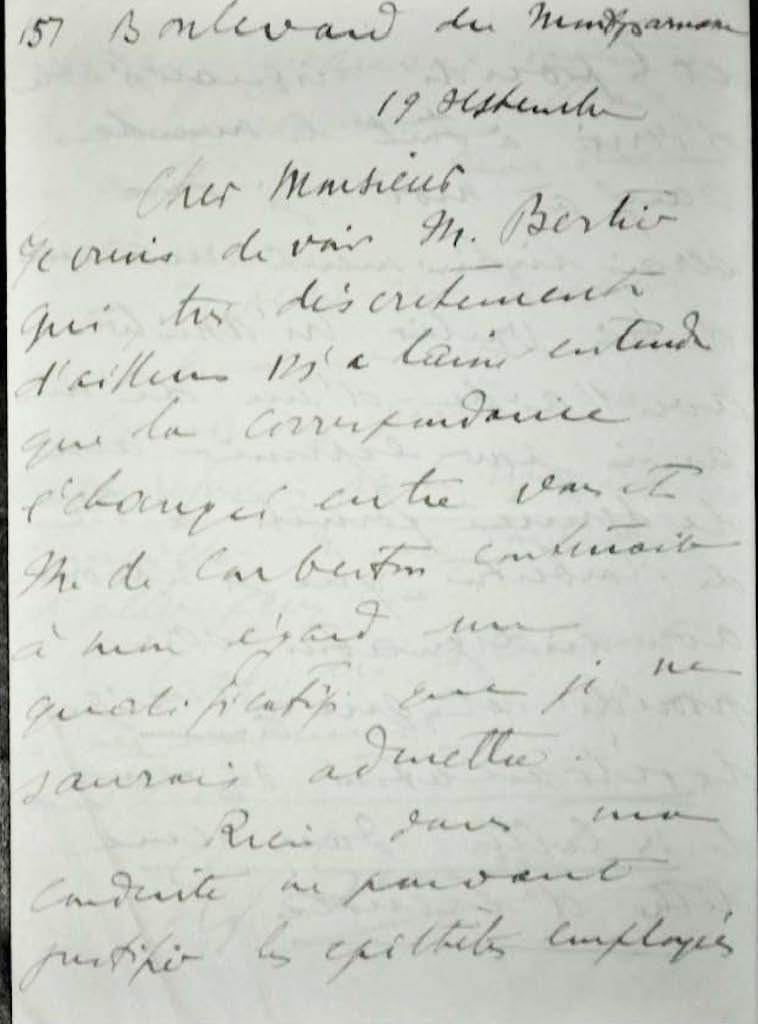 157 Boulevard du Montparnasse
19 septembre
Cher Monsieur
Je viens de voir M. Bertier
qui très discrètement
d'ailleurs m'a laissé entendre
que la correspondance
échangée entre vous et
M. de Courberton contenait
à mon égard un
qualificatif que je ne
saurais admettre.
Rien dans ma
conduite ne pouvant
justifier les epithètes employées